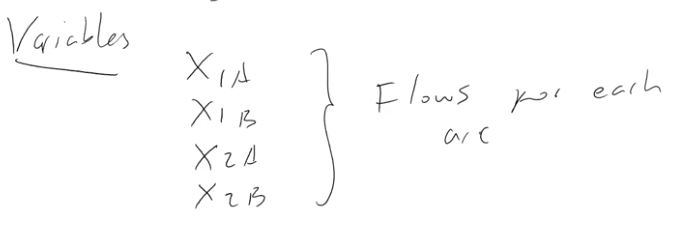 Variables
X1A
X1B
X2A
X2B
Flows for each
arc